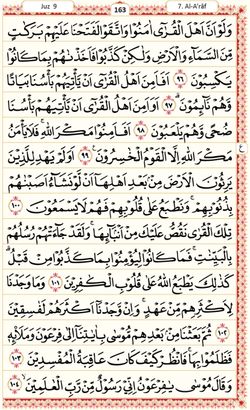 Juz 9 163 7. Al-A'râf
وَلَوْ اَنَّ اَهْلَ الْقُرٰٓى اٰمَنُوْا وَاتَّقَوْا لَفَتَحْنَا عَلَيْهِمْ بَرَكٰتٍ
مِّنَ السَّمَآءِ وَالْاَرْضِ وَلٰكِنْ كَذَّبُوْا فَاَخَذْنٰهُمْ بِمَا كَانُوْا
يَكْسِبُوْنَ ٩٦ اَفَاَمِنَ اَهْلُ الْقُرٰٓى اَنْ يَّأْتِيَهُمْ بَأْسُنَا بَيَاتًا
وَّهُمْ نَآئِمُوْنَ ۗ ٩٧ اَوَاَمِنَ اَهْلُ الْقُرٰٓى اَنْ يَّأْتِيَهُمْ بَأْسُنَا
ضُحًى وَّهُمْ يَلْعَبُوْنَ ٩٨ اَفَاَمِنُوْا مَكْرَ اللّٰهِ ۚ فَلَا يَأْمَنُ
مَكْرَ اللّٰهِ اِلَّا الْقَوْمُ الْخٰسِرُوْنَ ࣖ ٩٩ اَوَلَمْ يَهْدِ لِلَّذِيْنَ
يَرِثُوْنَ الْاَرْضَ مِنْۢ بَعْدِ اَهْلِهَآ اَنْ لَّوْ نَشَآءُ اَصَبْنٰهُمْ
بِذُنُوْبِهِمْ ۚ وَنَطْبَعُ عَلٰى قُلُوْبِهِمْ فَهُمْ لَا يَسْمَعُوْنَ ١٠٠
تِلْكَ الْقُرٰى نَقُصُّ عَلَيْكَ مِنْ اَنْۢبَآئِهَا ۚ وَلَقَدْ جَآءَتْهُمْ رُسُلُهُمْ
بِالْبَيِّنٰتِ ۚ فَمَا كَانُوْا لِيُؤْمِنُوْا بِمَا كَذَّبُوْا مِنْ قَبْلُ ۗ
كَذٰلِكَ يَطْبَعُ اللّٰهُ عَلٰى قُلُوْبِ الْكٰفِرِيْنَ ١٠١ وَمَا وَجَدْنَا
لِاَكْثَرِهِمْ مِّنْ عَهْدٍ ۚ وَاِنْ وَّجَدْنَآ اَكْثَرَهُمْ لَفٰسِقِيْنَ
١٠٢ ثُمَّ بَعَثْنَا مِنْۢ بَعْدِهِمْ مُّوْسٰى بِاٰيٰتِنَآ اِلٰى فِرْعَوْنَ وَمَلَا۟ئِهٖ
فَظَلَمُوْا بِهَا ۚ فَانْظُرْ كَيْفَ كَانَ عَاقِبَةُ الْمُفْسِدِيْنَ ١٠٣
وَقَالَ مُوْسٰى يٰفِرْعَوْنُ اِنِّيْ رَسُوْلٌ مِّنْ رَّبِّ الْعٰلَمِيْنَ ۙ ١٠٤